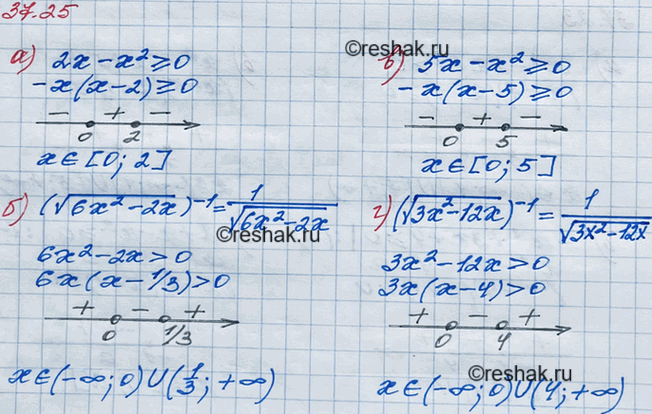 37.25
©reshak.ru
а) 2x - x² ≥ 0
-x(x-2) ≥ 0
- + -
0 2
x ∈ [0; 2]
в) 5x - x² ≥ 0
-x(x-5) ≥ 0
- + -
0 5
x ∈ [0; 5]
б) (√6x²-2x)⁻¹ = 1/√6x²-2x
©reshak.ru
6x²-2x > 0
6x(x-1/3) > 0
+ - +
0 1/3
x ∈ (-∞; 0) U (1/3; +∞)
г) (√3x²-12x)⁻¹ = 1/√3x²-12x
3x²-12x > 0
3x(x-4) > 0
+ - +
0 4
©reshak.ru
x ∈ (-∞; 0) U (4; +∞)